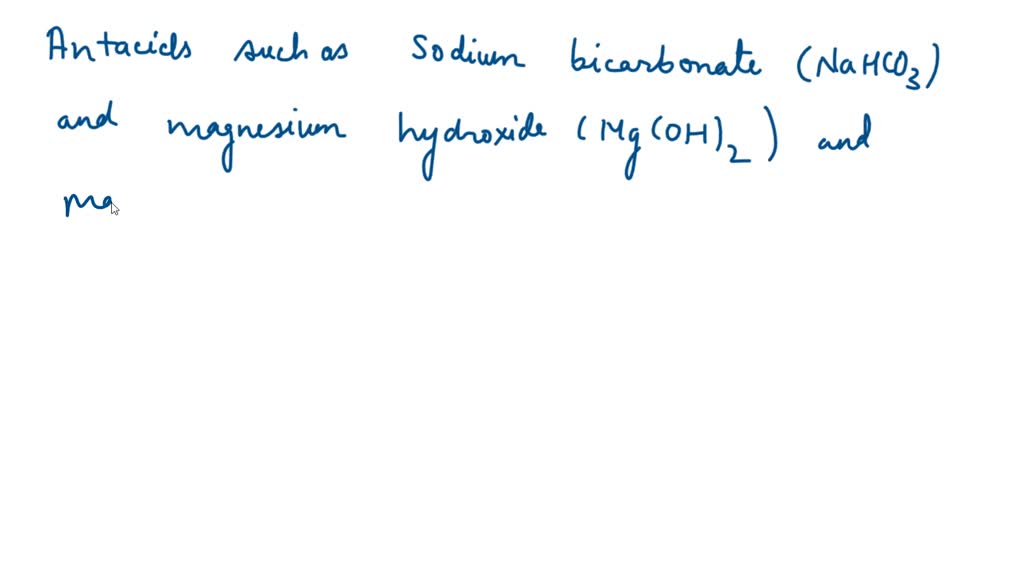 Antacids such as Sodium bicarbonate (NaHCO3)
and magnesium hydroxide (Mg(OH)2) and
ma